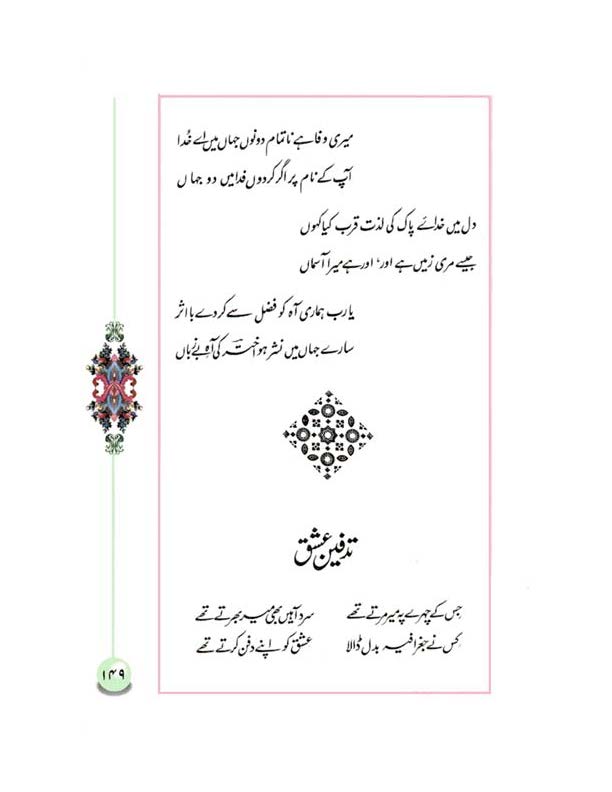 میری وفا ہے ناتمام دونوں جہاں میں اے خُدا
آپ کے نام پر اگر کردوں فدا میں دو جہاں
دل میں خدائے پاک کی لذت قرب کیا کہوں
جیسے مری زمیں ہے اور، اور ہے میرا آسماں
یارب ہماری آہ کو فضل سے کردے با اثر
سارے جہاں میں نشر ہو اخترؔ کی آہِ بے زباں
تدفینِ عشق
جس کے چہرے پہ میر مرتے تھے سرد آہیں بھی میر بھرتے تھے
کس نے جغرافیہ بدل ڈالا عشق کو اپنے دفن کرتے تھے
۱۴۹